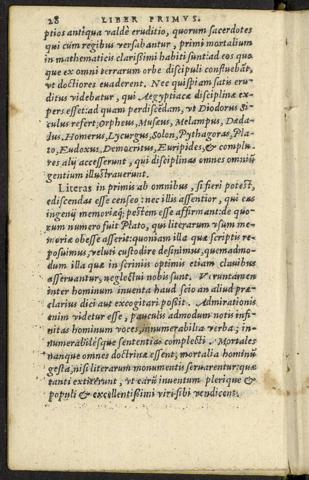 28 LIBER PRIMVS.
ptios antiqua valdè eruditio, quorum sacerdotes
qui cùm regibus versabantur, primi mortalium
in mathematicis clarißimi habiti sunt: ad eos quo
que ex omni terrarum orbe discipuli confluebāt,
vt doctiores euaderent. Nec quispiam satis eru-
ditus videbatur, qui Aegyptiacæ disciplinæ ex-
pers esset: ad quam perdiscēdam, vt Diodorus Si-
culus refert, Orpheus, Musæus, Melampus, Dæda-
lus, Homerus, Lycurgus, Solon, Pythagoras, Pla-
to, Eudoxus, Democritus, Euripides, & complu-
res alij accesserunt, qui disciplinas omnes omniū
gentium illustrauerunt.
Literas in primis ab omnibus, si fieri potest,
ediscendas esse censeo: nec illis assentior, qui eas
ingenij memoriæq; pestem esse affirmant: de quo-
rum numero fuit Plato, qui literarum vsum me-
moriæ obesse asserit: quoniam illa quæ scriptis re-
posuimus, veluti custodire desinimus, quemadmo-
dum illa quæ in scriniis optimis etiam clauibus
asseruantur, neglectui nobis sunt. Veruntamen
inter hominum inuenta haud scio an aliud præ-
clarius dici aut excogitari poßit. Admirationis
enim videtur esse, pauculis admodum notis infi-
nitas hominum voces, innumerabilia verba, in-
numerabilésque sententias complecti. Mortales
nanque omnes doctrinæ essent, mortalia hominū
gesta, nisi literarum monumentis seruarentur: quæ
tanti extiterunt, vt earū inuentum plerique &
populi & excellentißimi viri sibi vendicent.